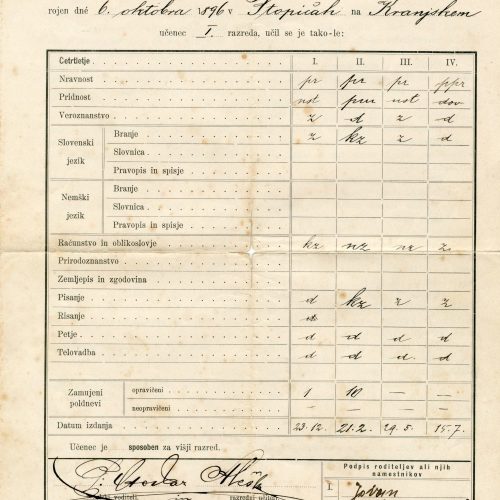 rojen dné 6. oktobra 1896 v Stopičah na Kranjskem
učenec I. razreda, učil se je tako-le:
Četrtletje I. II. III. IV.
Nravnost pr pr pr ppr
Pridnost ust pm ust dov
Veroznanstvo z d z d
Slovenski jezik Branje z kz z d
Slovnica
Pravopis in spisje
Nemški jezik Branje
Slovnica
Pravopis in spisje
Računstvo in oblikoslovje kz nz nz z
Prirodoznanstvo
Zemljepis in zgodovina
Pisanje d kz z z
Risanje d
Petje d d d d
Telovadba d d d d
Zamujeni poldnevi opravičeni 1 10 — —
neopravičeni — — — —
Datum izdanja 23.12. 21.2. 29.5. 15.7.
Učenec je sposoben za višji razred.
Podpis roditeljev ali njih namestnikov
I.
voditelj. razredni učitelj.